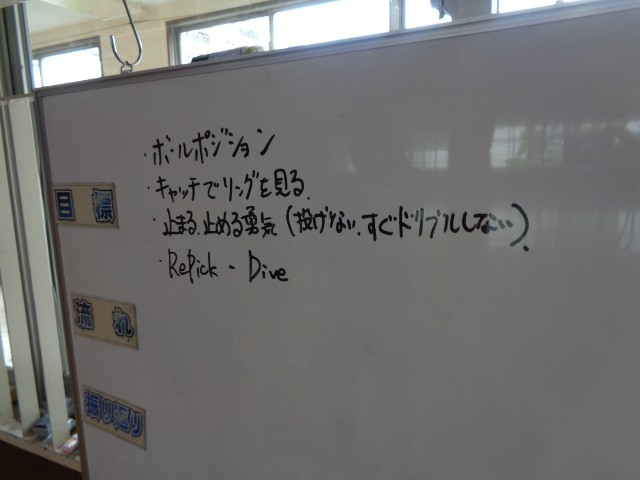 ・ボールポジション
・キャッチでリングを見る.
目標
・止まる、止める勇気(投げない、すぐドリブルしない).
・RePick - Dive
流れ
振り返り